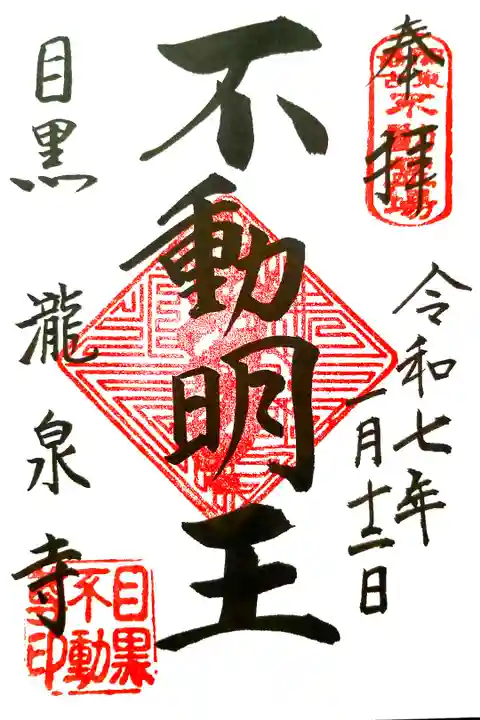 奉拝
令和七年
一月十二日
不動明王
目黒 瀧泉寺
目黒
不動
尊印